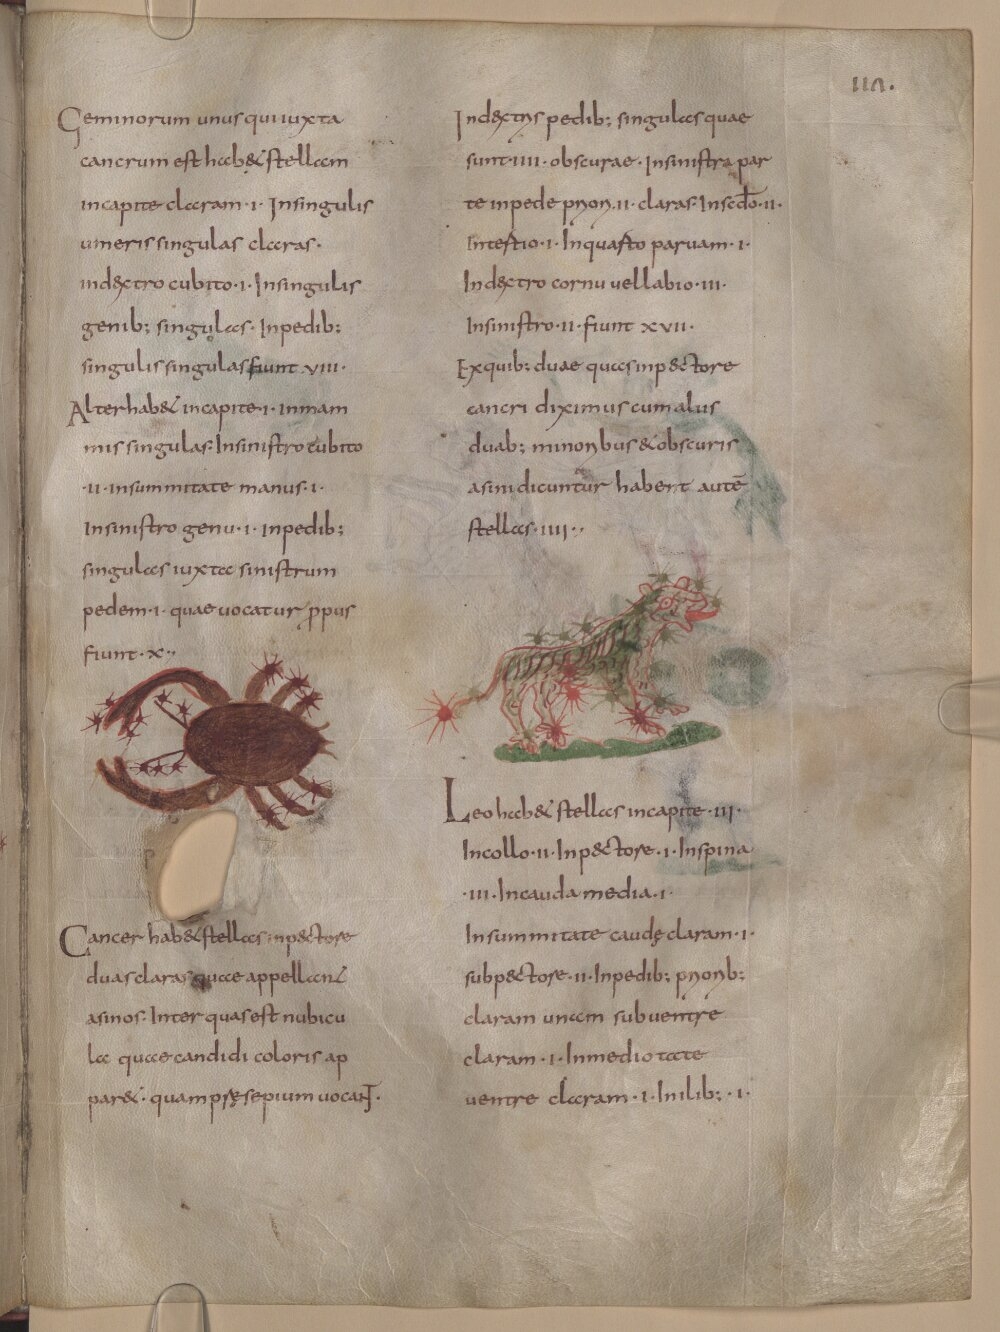 Geminorum unus qui iuxta
cancrum est hab& stellam
in capite claram ·I· In singulis
umeris singulas claras·
in dextro cubito ·I· In singulis
genib; singulas· In pedib;
singulis singulas fiunt VIII·
Alter hab& in capite ·I· in mam
mis singulas· In sinistro cubito
·II· in summitate manus ·I·
In sinistro genu ·I· in pedib;
singulas iuxta sinistrum
pedem ·I· quae uocatur ꝓpus
fiunt ·X·
Cancer hab& stellas in pectore
duas claras quae appellant
asinos· Inter quas est nubicu
la quae candidi coloris ap
par&· quam p̄sepium uocant·
In dextris pedib; singulas quae
sunt ·IIII· obscurae· In sinistra par
te in pede priori ·II· claras· In secdō ·II·
In tertio ·I· In quarto paruam ·I·
In dextro cornu uel labio ·III·
In sinistro ·II· fiunt XVII·
Ex quib; duae quas in pectore
cancri diximus cum aliis
duab; minoribus & obscuris
asini dicuntur habent autē
stellas ·IIII·
Leo hab& stellas in capite ·III·
In collo ·II· In pectore ·I· In spina
·III· In cauda media ·I·
In summitate caudę claram ·I·
sub pectore ·II· In pedib; priorib;
claram unam sub uentre
claram ·I· In medio
uentre claram ·I· In ilib; ·I·